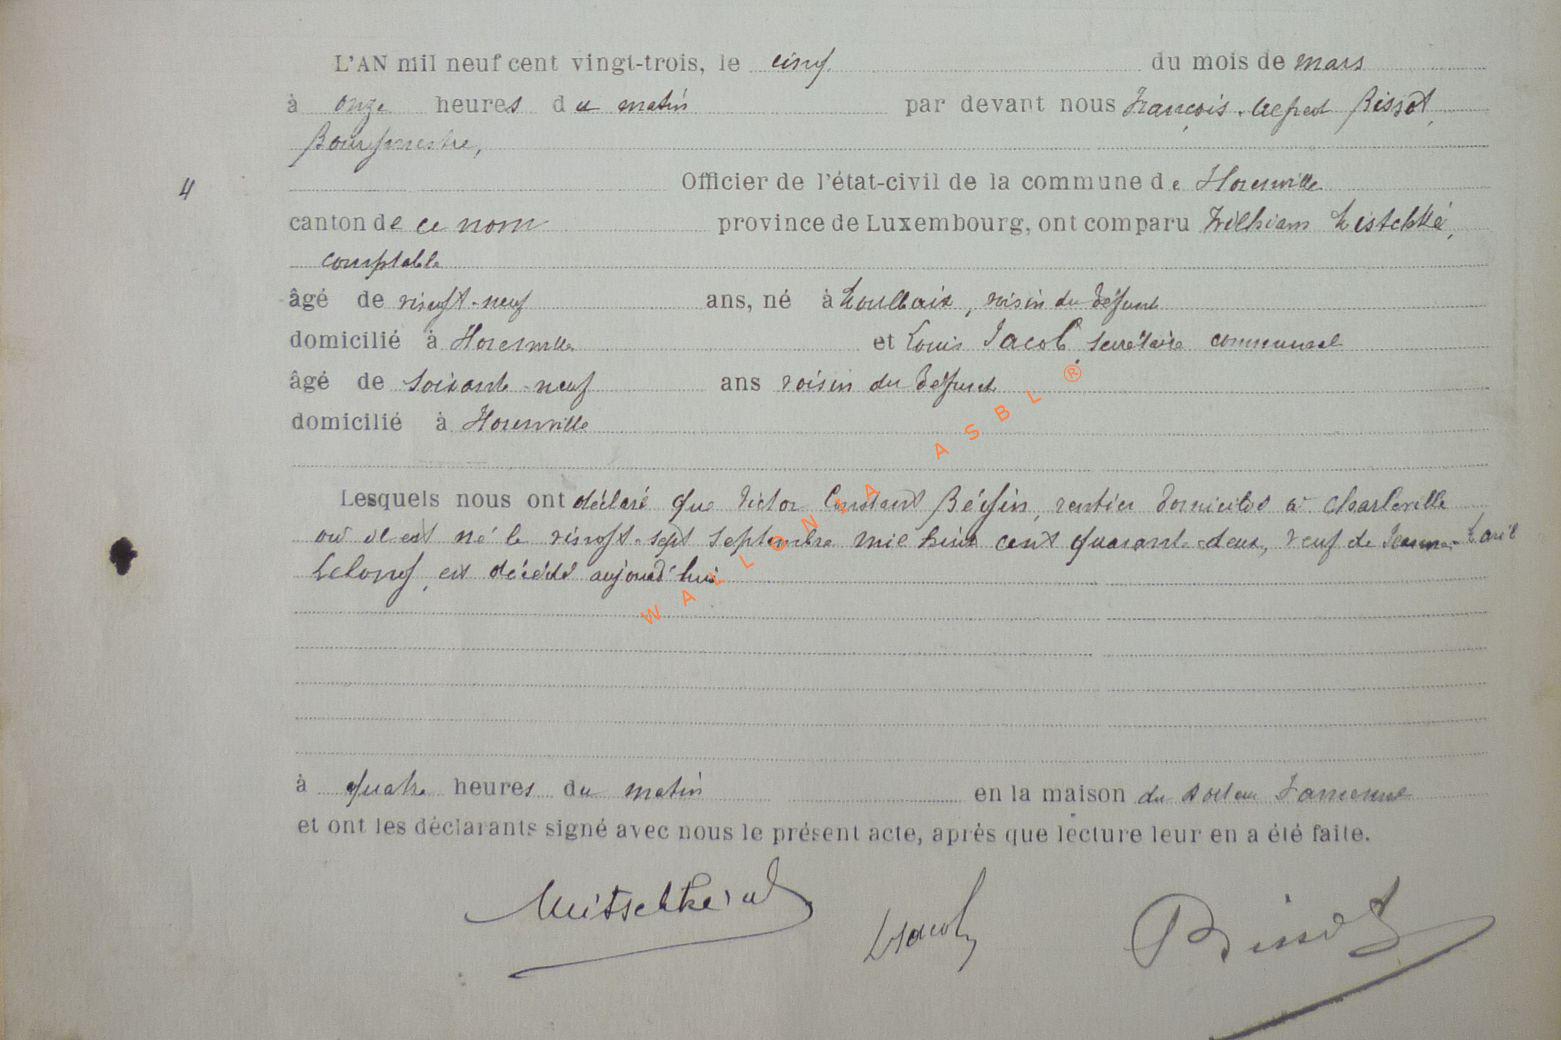 L'AN mil neuf cent vingt-trois, le cinq du mois de mars
à onze heures du matin par devant nous François Alfred Bissot,
Bourgmestre,
4 Officier de l'état-civil de la commune de
canton de ce nom province de Luxembourg, ont comparu William
comptable
âgé de vingt-neuf ans, né à Roubaix, voisin du défunt
domicilié à et Louis Jacob, secrétaire communal
âgé de soixante-neuf ans voisin du défunt
domicilié à
Lesquels nous ont déclaré que Victor Constant Béghin, rentier domicilié à Charleville
où il est né le vingt-sept septembre mil huit cent quarante-deux, veuf de Jeanne
Lelong, est décédé aujourd'hui
WALLONIA ASBL ®
à quatre heures du matin en la maison du docteur Famenne
et ont les déclarants signé avec nous le présent acte, après que lecture leur en a été faite.
LJacob
Bissot